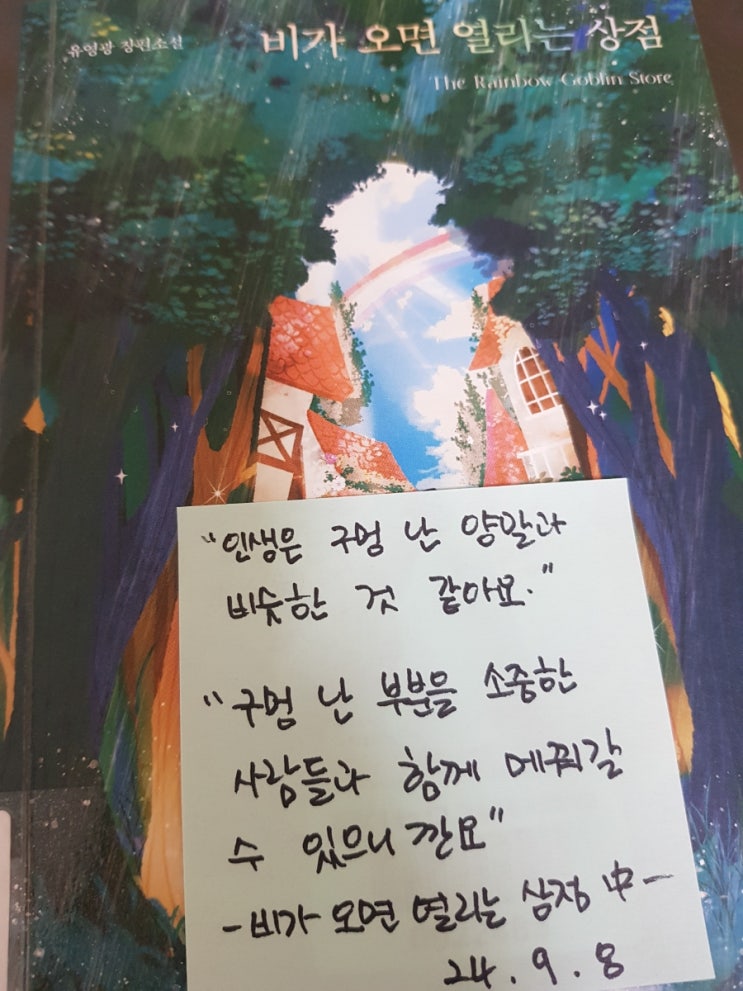 유영광 장편소설
비가 오면 열리는 상점
The Rainbow Goblin Store
"인생은 구멍 난 양말과
비슷한 것 같아요."
"구멍 난 부분을 소중한
사람들과 함께 메꿔갈
수 있으니깐요"
- 비가 오면 열리는 상점 中 -
24. 9. 8